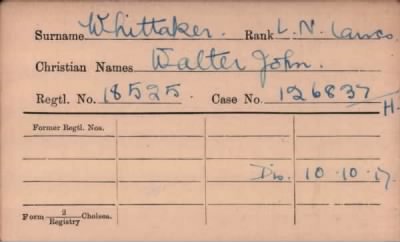 Surname Whittaker. Rank L. N. Lancs
Christian Names Walter John.
Regtl. No. 18525 Case No. 126837/H.
Former Regtl. Nos.
Dis. 10.10.17.
Form 2/Registry Chelsea.